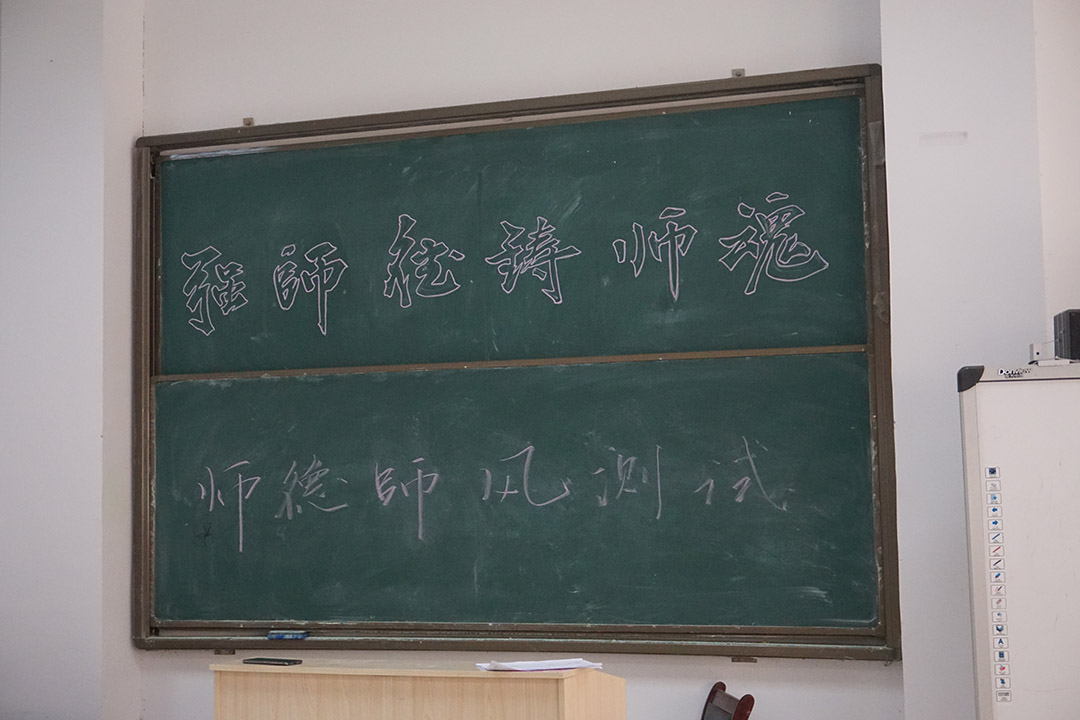 强師德铸师魂
师德師风测试
DonView